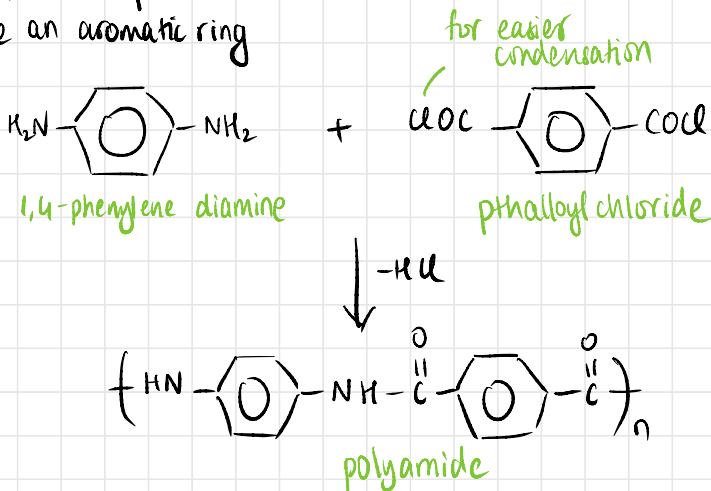 an aromatic ring
for easier
condensation
H₂N NH₂ + ClOC COCl
1,4-phenylene diamine pthalloyl chloride
-HCl
O O
HN NH-C C n
polyamide